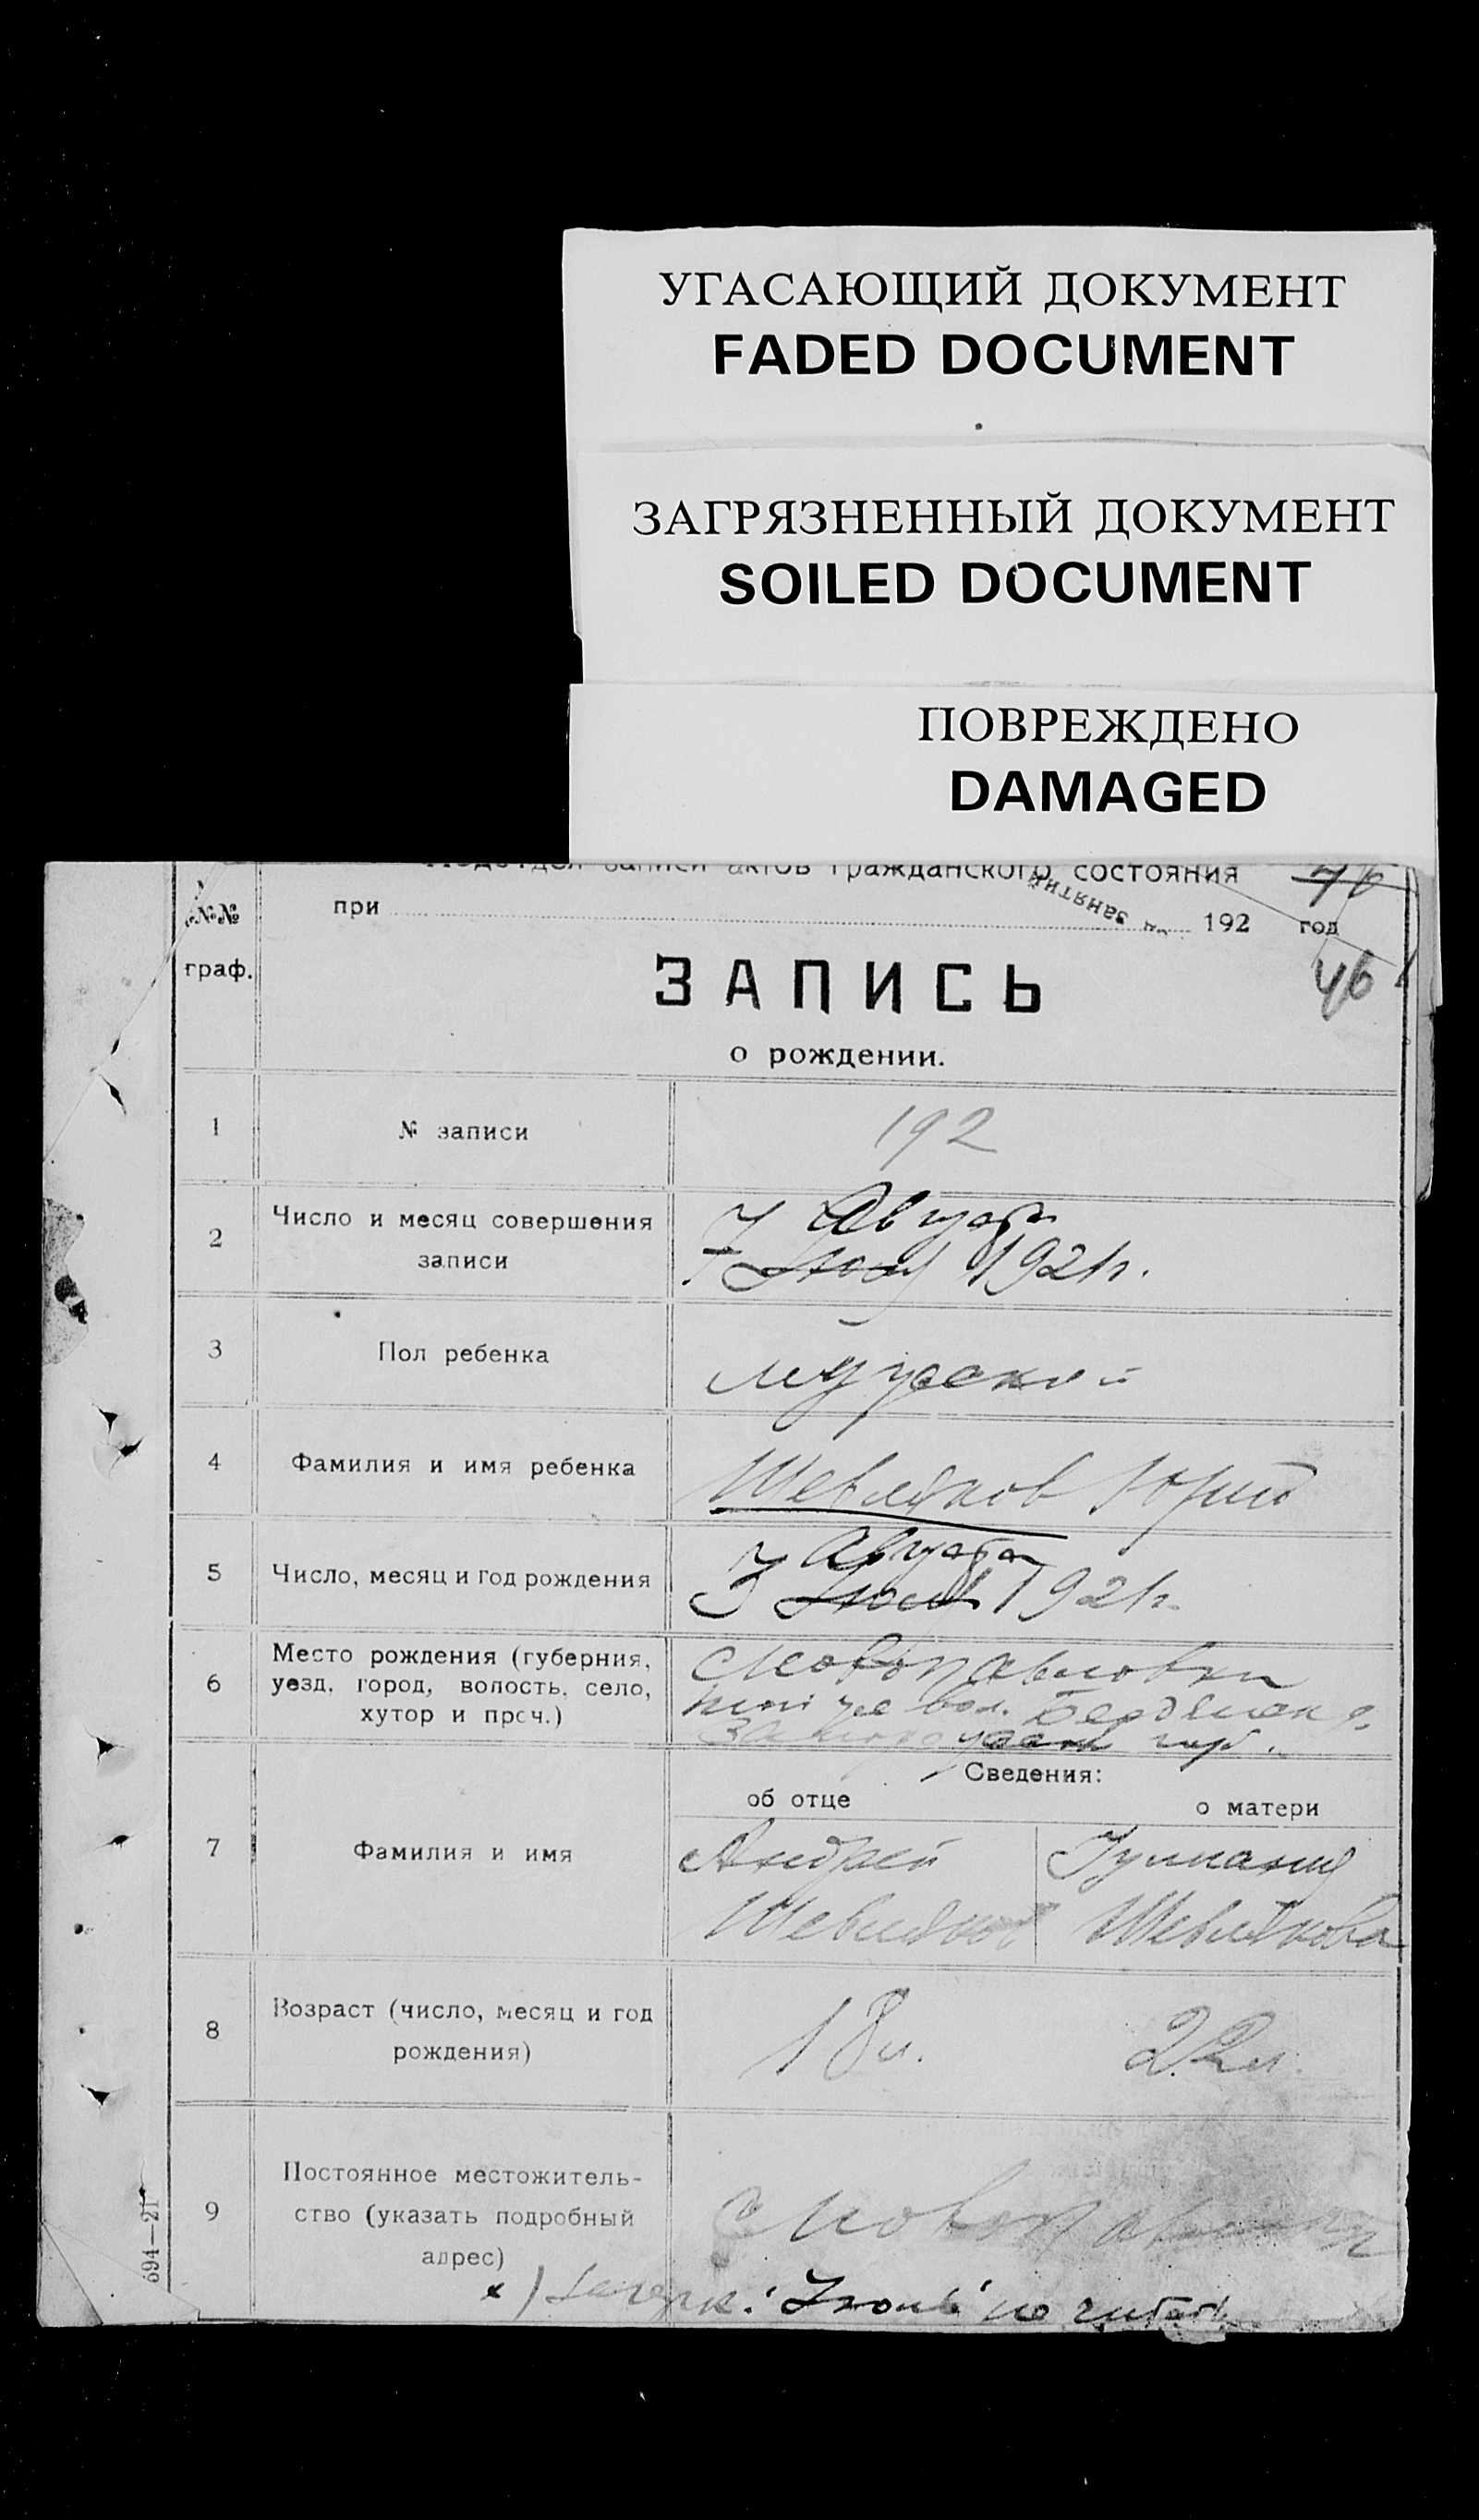 УГАСАЮЩИЙ ДОКУМЕНТ
FADED DOCUMENT
ЗАГРЯЗНЕННЫЙ ДОКУМЕНТ
SOILED DOCUMENT
ПОВРЕЖДЕНО
DAMAGED
записи актов гражданского состояния 46
№№ при 192 год
занятий
граф.
ЗАПИСЬ 46
о рождении.
1 № записи 192
2 Число и месяц совершения записи
7 Августа
7 Июля 1921 г.
3 Пол ребенка мужской
4 Фамилия и имя ребенка Шевляков Юрий
5 Число, месяц и год рождения
Августа
3 Июля 1921 г.
6 Место рождения (губерния,
уезд, город, волость, село,
хутор и проч.)
с Новопавловки
вол. Бердянск у.
губ.
Сведения:
об отце о матери
7 Фамилия и имя
Андрей
Шевляков Шевлякова
8 Возраст (число, месяц и год
рождения)
18 л. 22 л.
9 Постоянное местожитель-
ство (указать подробный
адрес)
с Новопавловка
х) "Июль" не читать
694—21